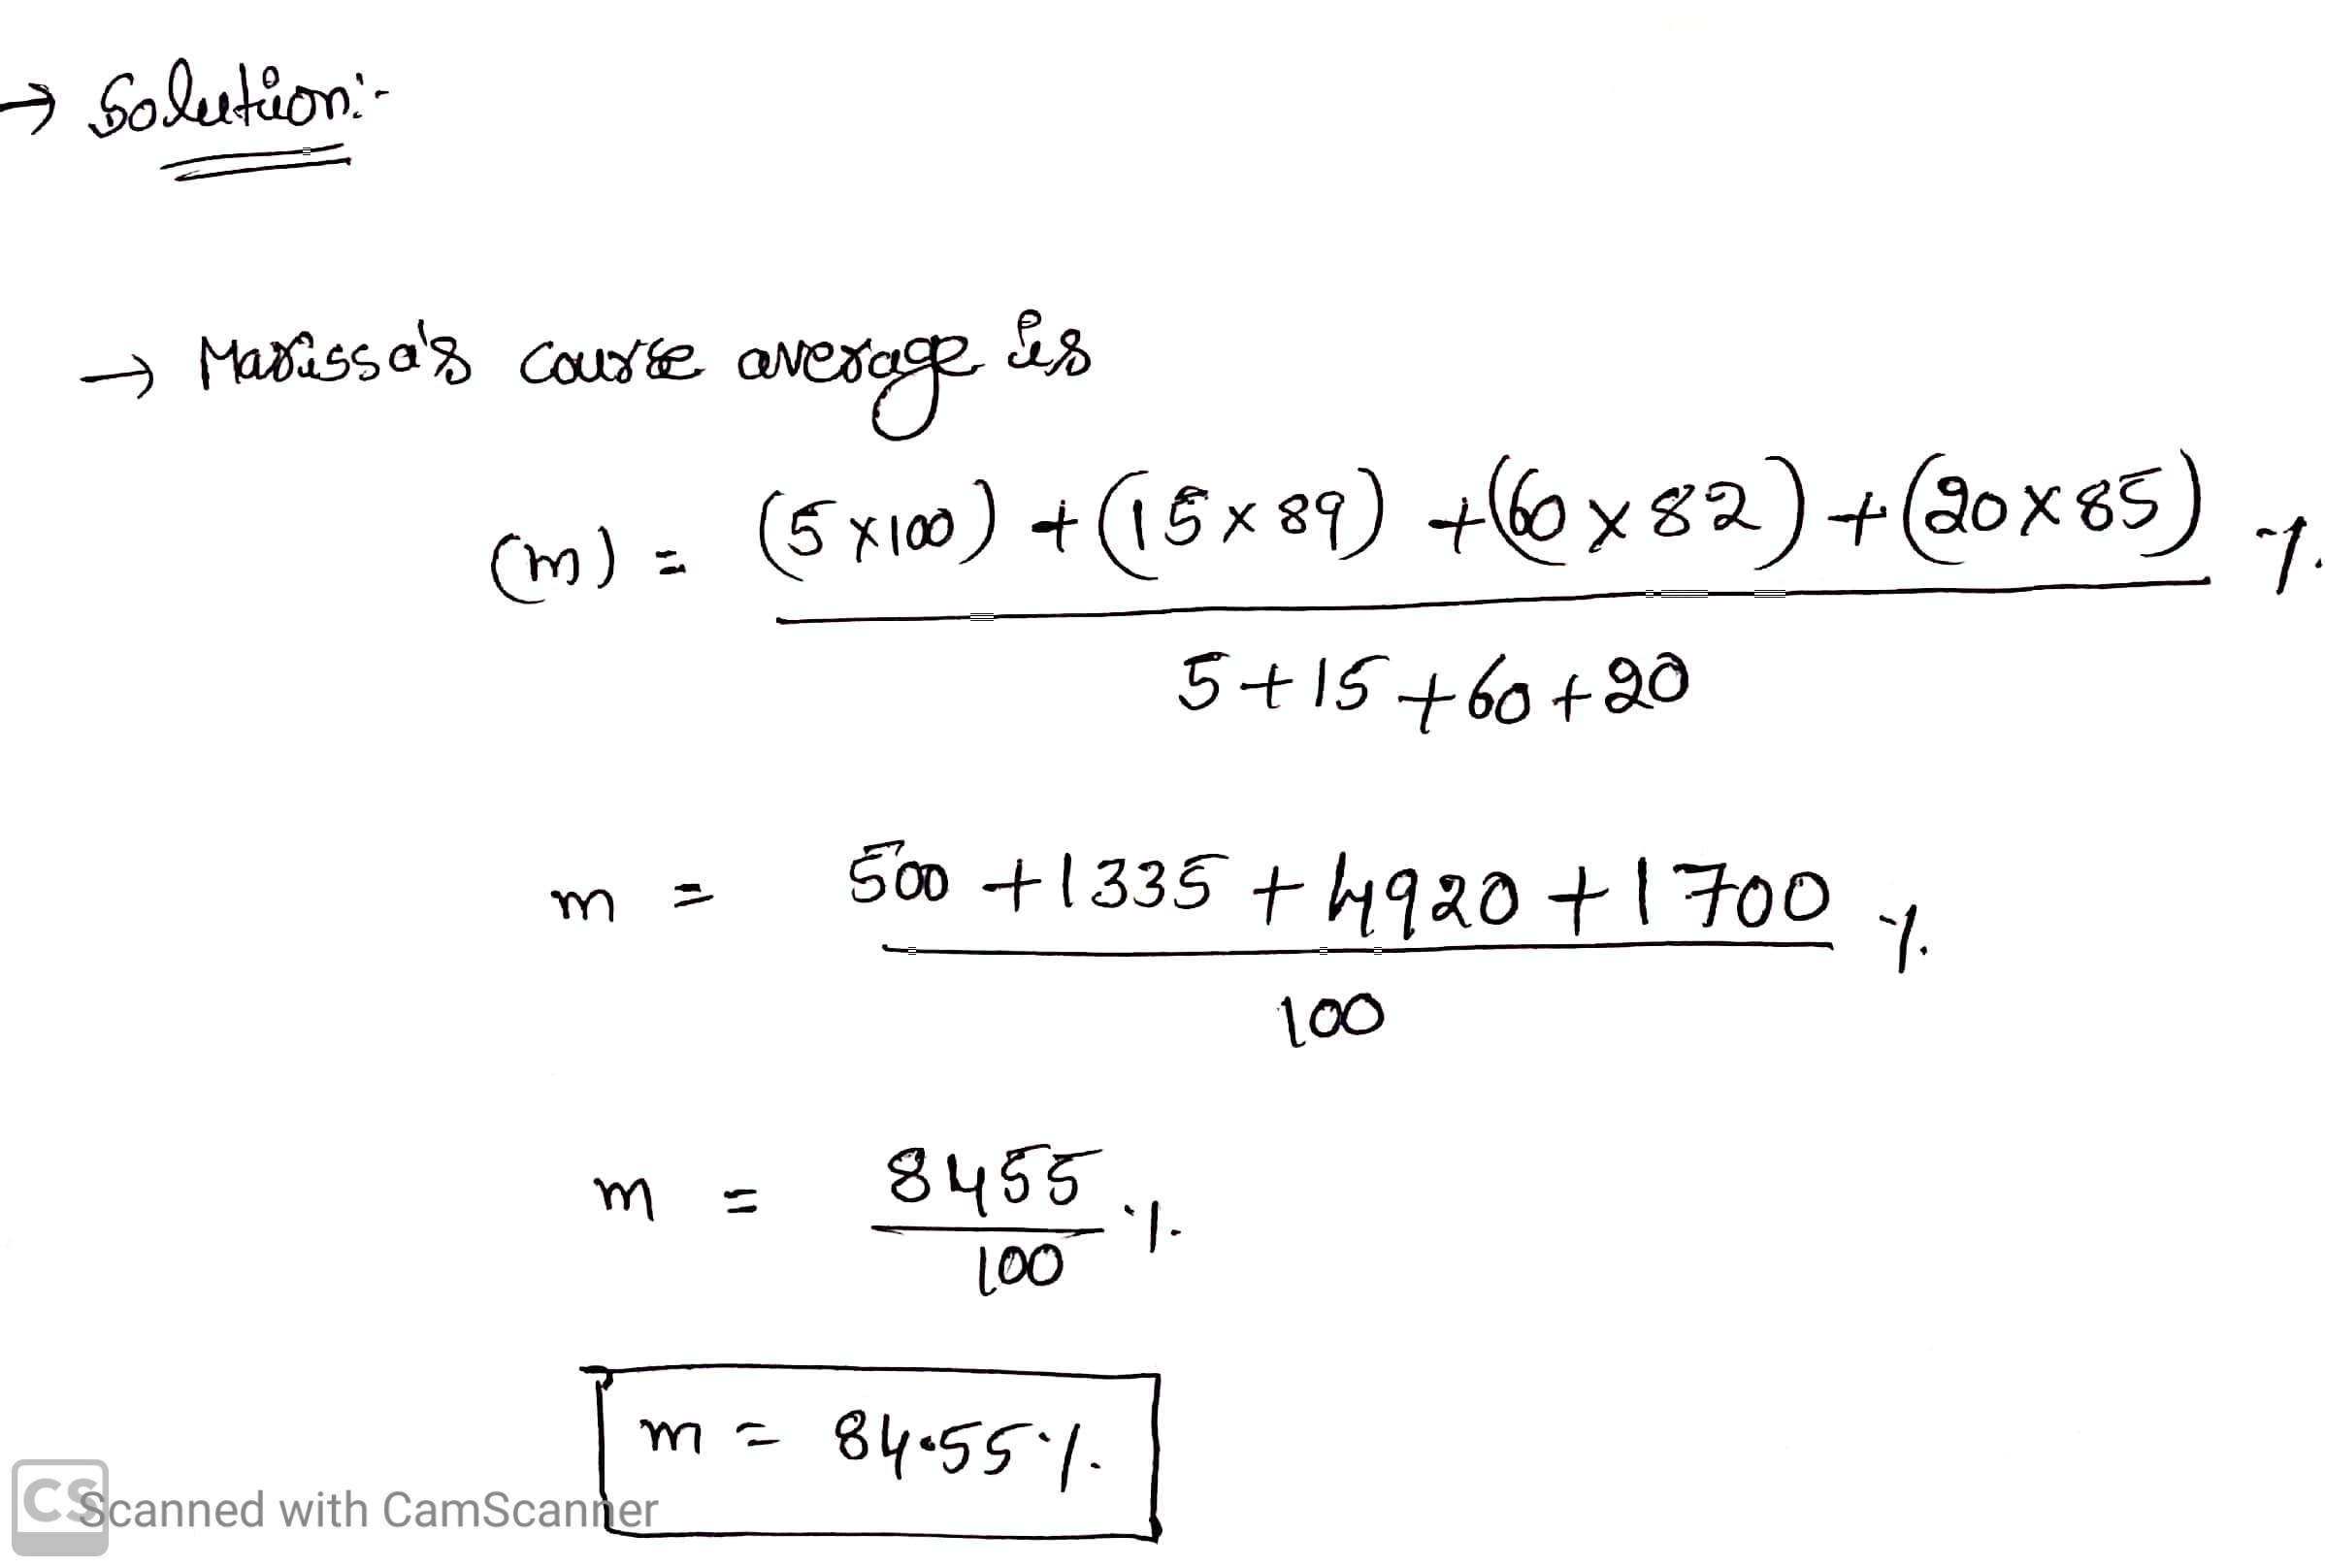 → Solution:-
→ Marissa's course average is
(m) = (5×100) + (15×89) + (60×82) + (20×85) %
5+15+60+20
m = 500 + 1335 + 4920 + 1700 %
100
m = 8455 %
100
m = 84.55%
CS Scanned with CamScanner